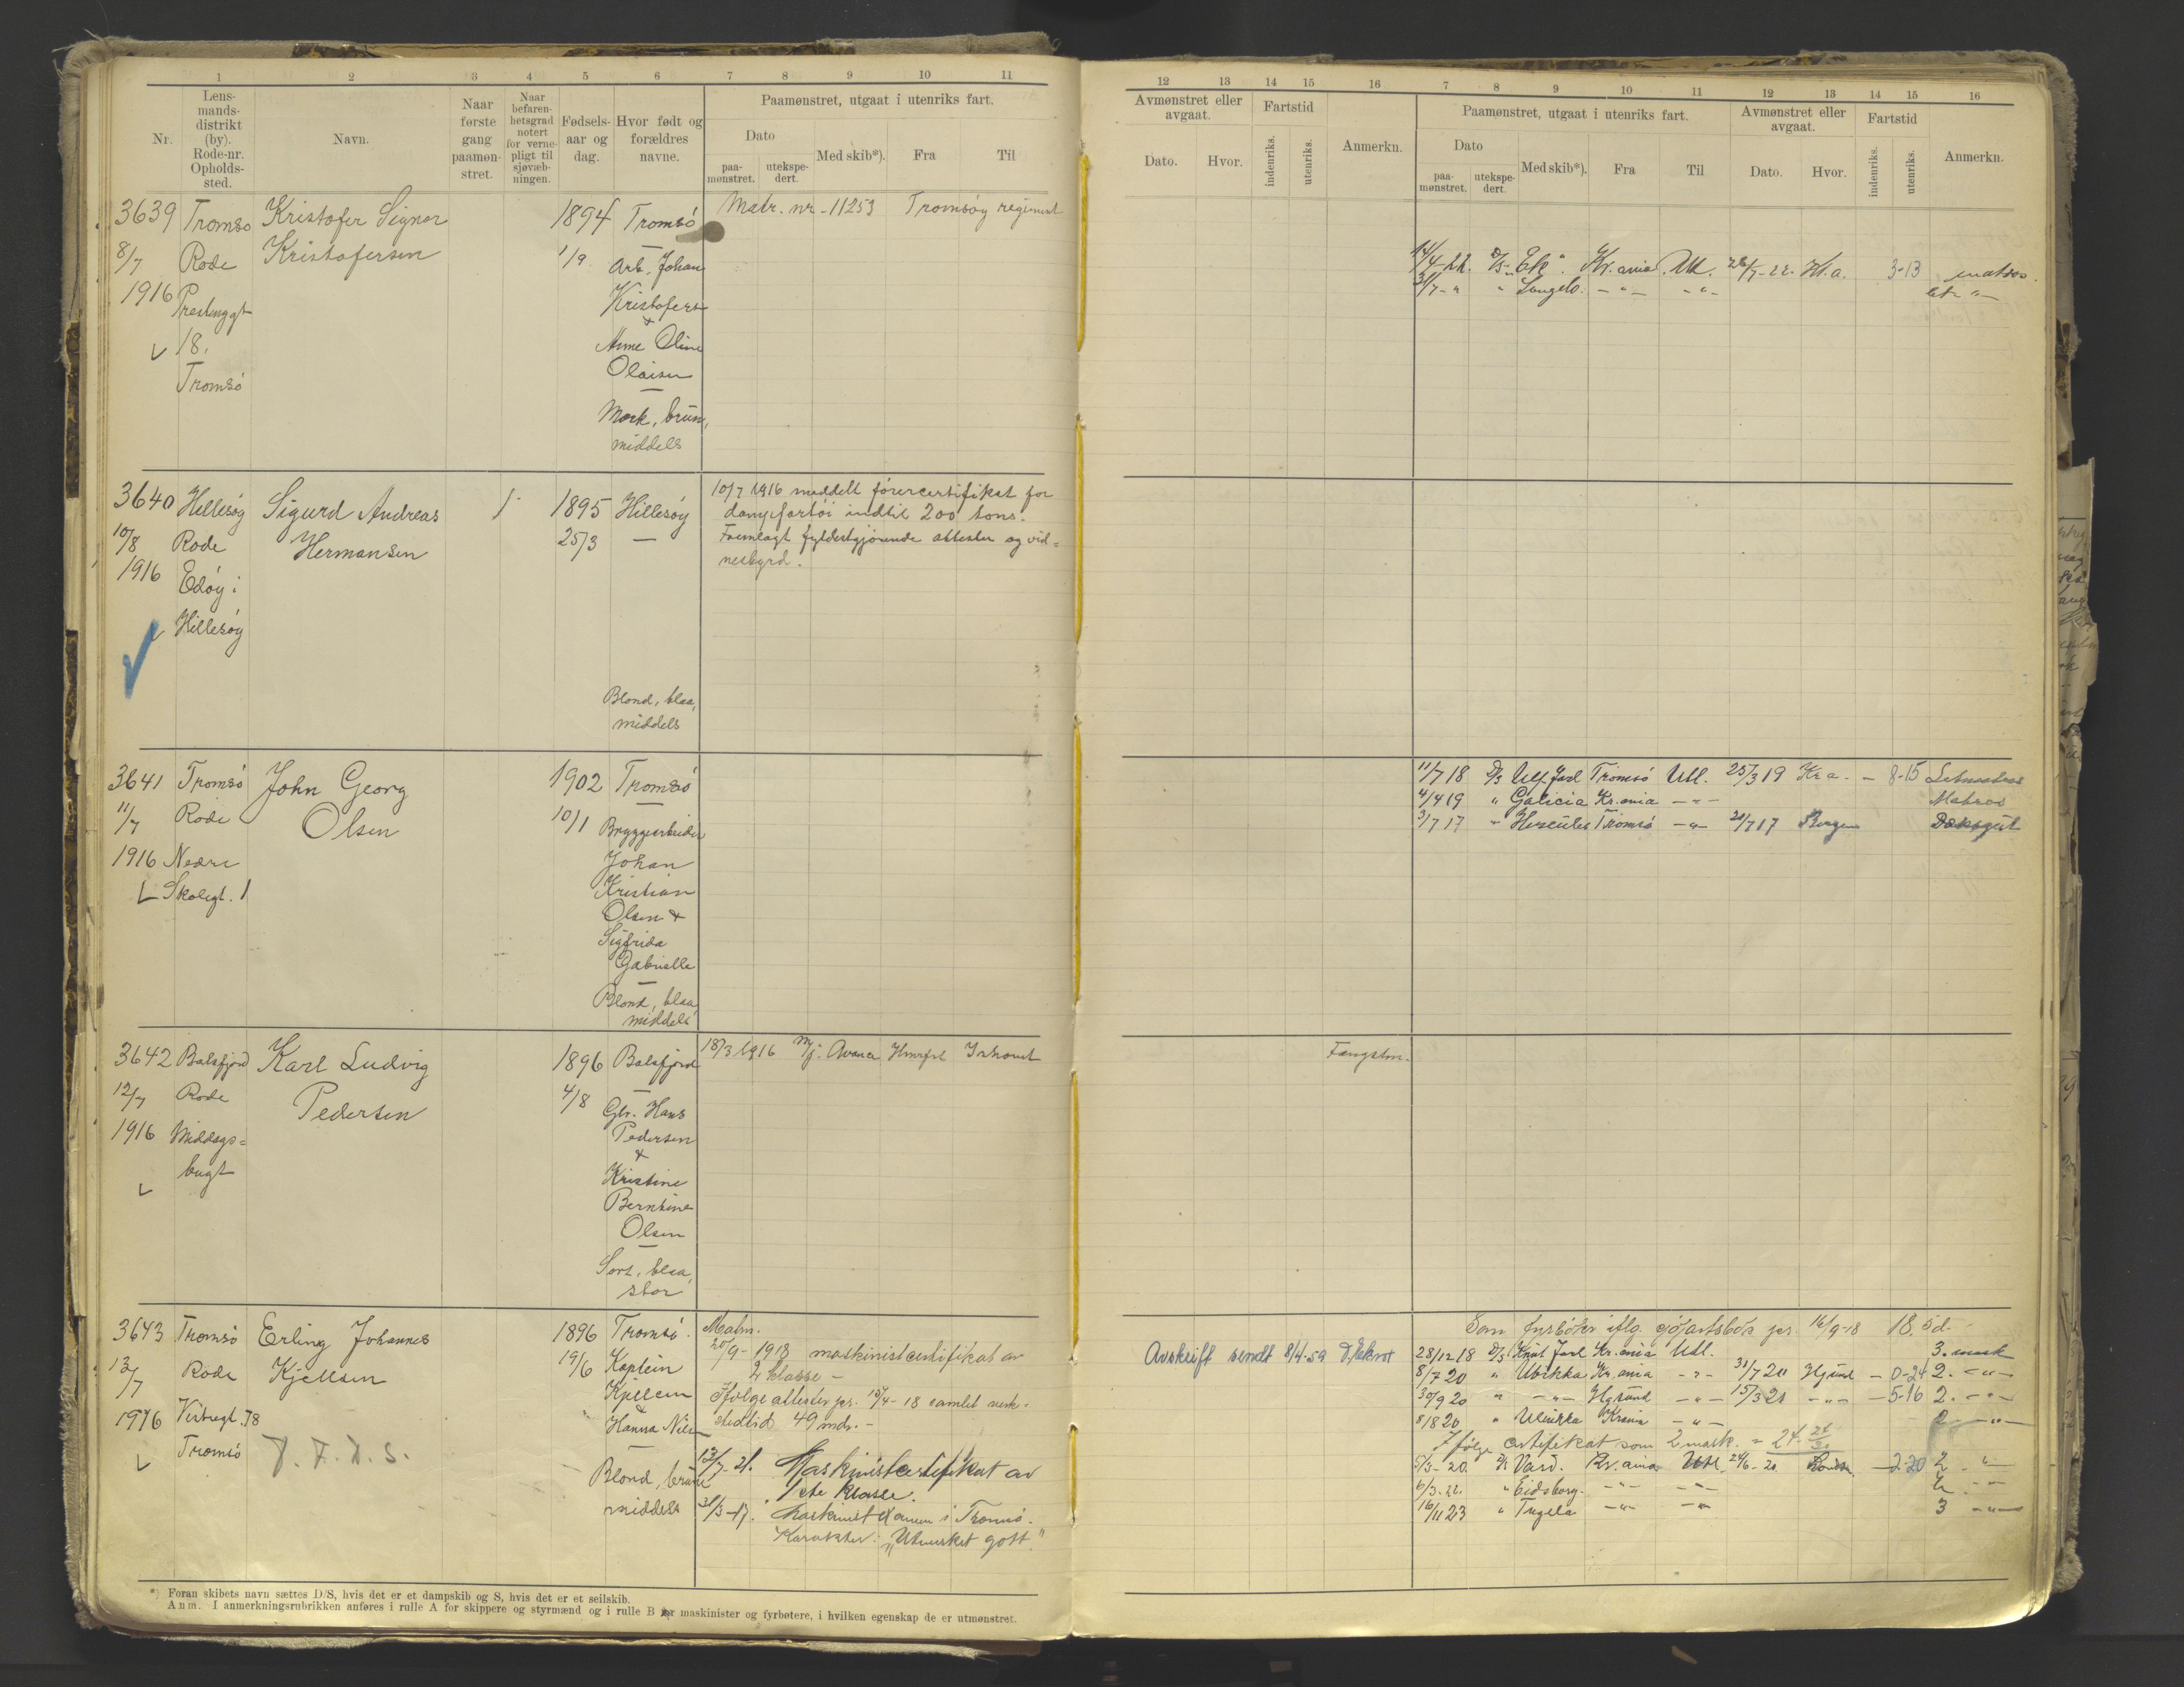 1 2 3 4 5 6 7 8 9 10 11
Nr.
Lens-
mands-
distrikt
(by).
Rode-nr.
Opholds-
sted.
Navn.
Naar
første
gang
paamøn-
stret.
Naar
befaren-
hetsgrad
notert
for verne-
pligt til
sjøvæb-
ningen.
Fødsels-
aar og
dag.
Hvor født og
forældres
navne.
Paamønstret, utgaat i utenriks fart.
Dato
paa-
mønstret.
utekspe-
dert.
Med skib*).
Fra
Til
3639
8/7
1916
Tromsø
Rode
18.
Tromsö
Kristofer Signor
Kristofersen
1894
1/9
Tromsö
Arb. Johan
Kristofers
&
Anne Oline
Olaisen
Mørk, brun,
middels
Matr. nr - 11253 Tromsöy regiment
3640
10/8
1916
Hillesøy
Rode
Edöy i
Hillesöy
Sigurd Andreas
Hermansen
1895
25/3
Hillesöy
Blond, blaa,
middels
10/7 1916 meddelt förercertifikat for
dampfartöi indtil 200 tons.
Fremlagt fyldestgjörende attester og vid=
nesbyrd.
3641
11/7
1916
Tromsö
Rode
Nedre
Skolegt. 1
John Georg
Olsen
1902
10/1
Tromsö
Bryggearbeider
Johan
Kristian
Olsen &
Sigfrida
Gabrielle
Blond, blaa
middels
3642
12/7
1916
Balsfjord
Rode
Middags=
bugt
Karl Ludvig
Pedersen
1896
4/8
Balsfjord
Gbr. Hans
Pedersen
&
Kristine
Berntine
Olsen
Sort, blaa,
stor
18/3 1916 M/j. Avance Hmrfst Ishavet
3643
13/7
1916
Tromsö
Rode
Vestregt. 78
Tromsö
Erling Johannes
Kjellsen
1896
19/6
Tromsö.
Kaptein
Kjellsen
&
Hanna Nils
Blond, brune
middels
20/9 - 1918 maskinistcertifikat av
2 klasse -
Ifölge attester pr. 15/4 - 18 samlet verk-
stedtid 49 mdr. -
13/7-21. Maskinistcertifikat av
1ste klasse.
Maskinisteksamen i Tromsö.
Karakter: „Utmerket gott."
*) Foran skibets navn sættes D/S, hvis det er et dampskib og S, hvis det er et seilskib.
Anm. I anmerkningsrubrikken anføres i rulle A for skippere og styrmænd og i rulle B for maskinister og fyrbøtere, i hvilken egenskap de er utmønstret.
12 13 14 15 16 7 8 9 10 11 12 13 14 15 16
Avmønstret eller
avgaat.
Dato.
Hvor.
Fartstid
indenriks.
utenriks.
Anmerkn.
Paamønstret, utgaat i utenriks fart.
Dato
paa-
mønstret.
utekspe-
dert.
Med skib*).
Fra
Til
Avmønstret eller
avgaat.
Dato.
Hvor.
Fartstid
indenriks.
utenriks.
Anmerkn.
14/4-22. D/S „Ek". Kr.ania. Utl. 26/7-22. Kr.a. 3-13 matros.
31/7-" " - " - - " -
11/7 18 D/S Ulf Jarl Tromsö Utl. 25/3 19 Kr a. - 8-15 Letmatros
4/4 19 " Galicia Kr.ania - " - Matros
3/7 17 " Hercules Tromsö - " - 21/7 17 Bergen Dæksgut
Fangstm.
Avskrift sendt 8/4-59
Som fyrböter iflg. sjöfartsbok pr. 16/9-18 18. 5 d.
28/12 18 D/S Knut Jarl Kr.ania Utl. 3. mask
8/7 20 " Ubikka Kr.ania - " - 31/7 20 - 0-24 2. - " -
30/9 20 " - " - - " - 15/3 21 - " - - 5-16 2. - " -
8/8 20 " Krania - " - 2 - " -
Ifölge certifikat som 2 mask. =
5/3-20. D/S Vard. Kr.ania Utl. 24/6-20 - 2-20 2 - " -
6/3-22. " Eidsborg. - " - - " - 2 - " -
16/11 23 " Tugela - " - - " - 3 - " -